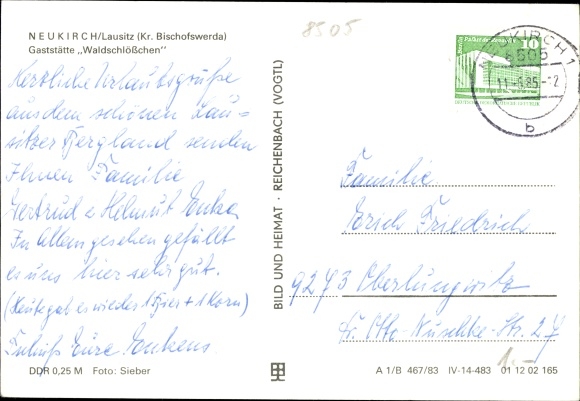 NEUKIRCH/Lausitz (Kr. Bischofswerda)
Gaststätte „Waldschlößchen"
8505
Herzliche Urlaubsgrüße
aus dem schönen Lau=
sitzer Bergland senden
Ihnen Familie
Gertrud u Helmut Enke
In Allem gesehen gefällt
es uns hier sehr gut.
(Heute gab es wieder 1 Bier + 1 Korn)
Eure Enkens.
DDR 0,25 M Foto: Sieber
BILD UND HEIMAT · REICHENBACH (VOGTL)
10
NEUKIRCH 1
8505
b
Familie
Erich Friedrich
9273 Oberlungwitz
Str. 27
1.-
A 1/B 467/83 IV-14-483 01 12 02 165